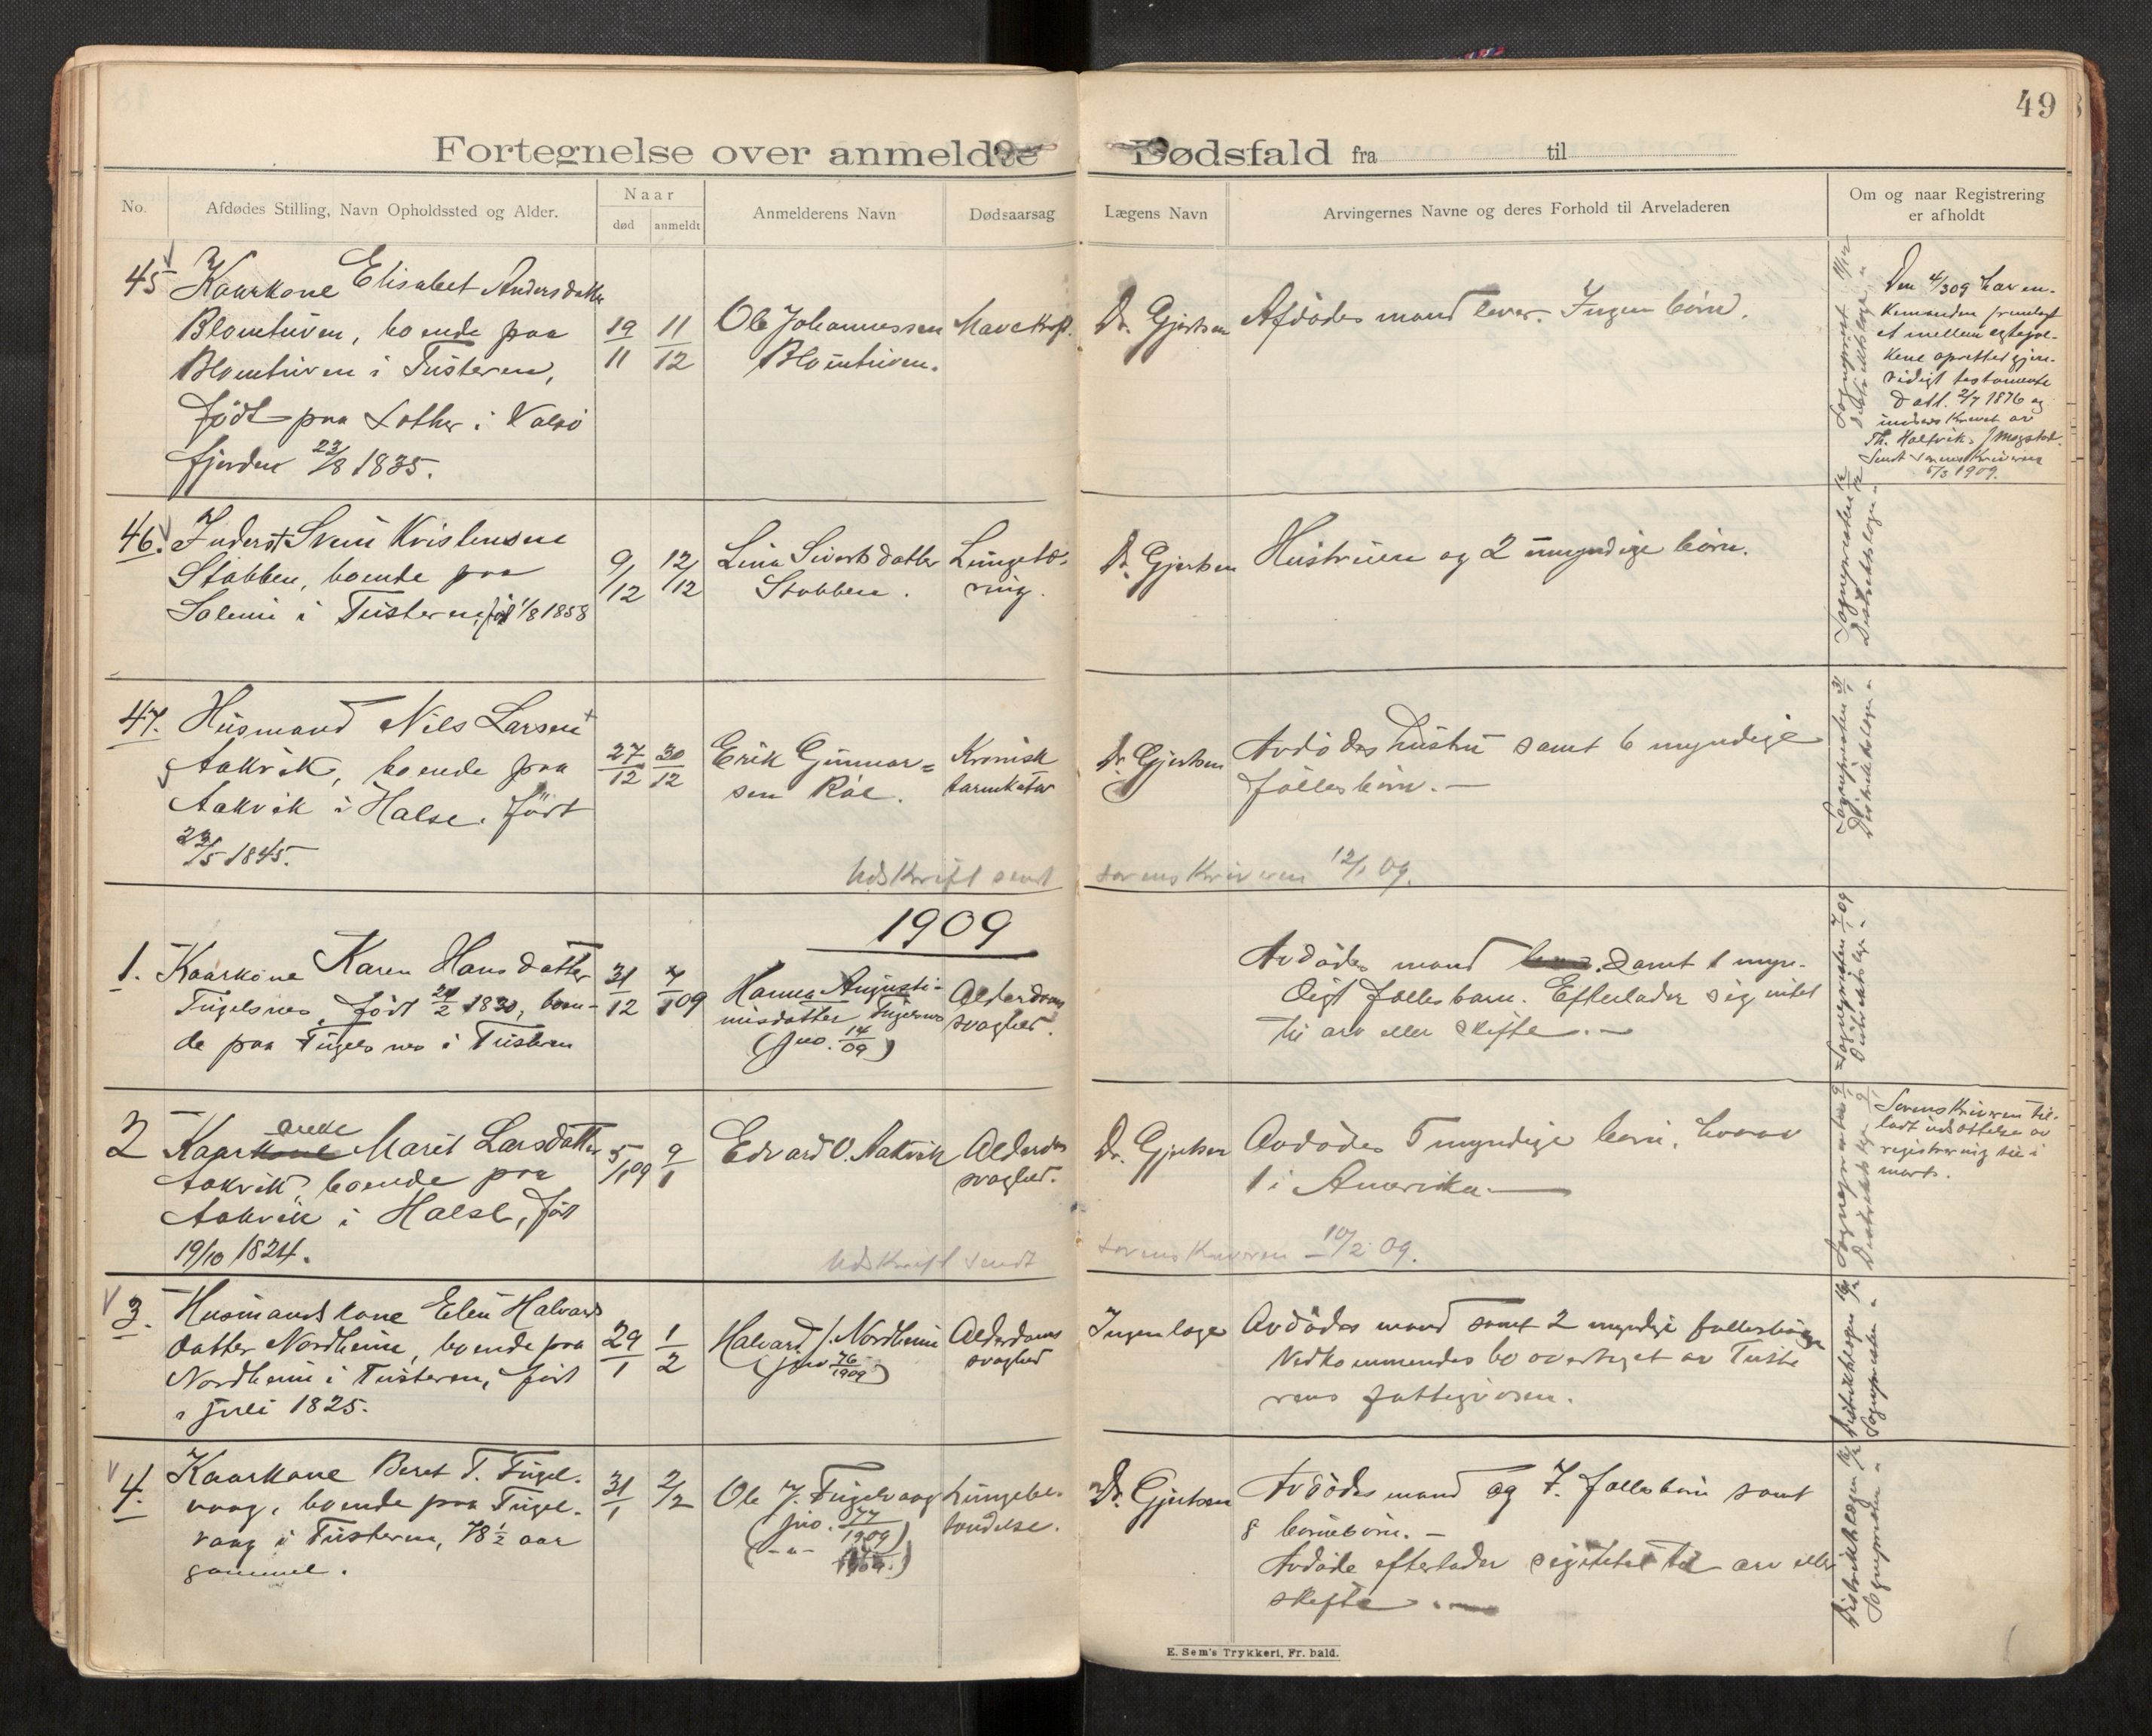 49
Fortegnelse over anmeldte Dødsfald fra til
No.
Afdødes Stilling, Navn Opholdssted og Alder.
Naar
død
anmeldt
Anmelderens Navn
Dødsaarsag
Lægens Navn
Arvingernes Navne og deres Forhold til Arveladeren
Om og naar Registrering
er afholdt
45
Kaarkone Elisabet Andersdatter
Blomtuven, boende paa
Blomtuven i Tusteren,
født paa i Valsø
fjorden 23/8 1835.
19/11
11/12
Ole Johannessen
Blomtuven.
Mavekræft.
Dr. Gjertsen
Afdødes mand lever. Ingen børn.
Den 4/3 09 har en-
kemanden fremlagt
et mellem egtefol-
kene oprettet gjen-
sidigt testamente
datt. 2/7 1876 og
Th. Halfvik.
Sendt sorenskriveren
5/3 1909.
46.
Inderst Svein Kristensen
Stabben, boende paa
Solem i Tusteren, født 1/8 1858
9/12
12/12
Lina Sivertsdatter
Stabben.
Lungetæ-
ring.
Dr. Gjertsen
Hustruen og 2 umyndige børn.
47.
Husmand Nils Larsen
Aakvik, boende paa
Aakvik i Halse. Født
23/5 1845.
27/12
30/12
Erik Gunnar=
sen Råe.
Kronisk
tarmkatar
Dr. Gjertsen
Avdødes hustru samt 6 myndige
fællesbørn. —
Udskrift sendt sorenskriveren 12/1 09.
1909
1.
Kaarkone Karen Hansdatter
Fugelsnes, født 20/2 1830, boen-
de paa Fugelsnes i Tusteren
31/12
7/1 09
Hanna Augusti-
nusdatter Fugelsnes
(jno. 14/09)
Alderdoms
svaghed.
Avdødes mand samt 1 myn-
digt fællesbarn. Efterlader sig intet
til arv eller skifte. —
2
Kaarkone enke Marit Larsdatter
Aakvik, boende paa
Aakvik i Halse, født
19/10 1824.
5/1 09
9/1
Edvard O. Aakvik
Alderdoms
svaghed.
Dr. Gjertsen
Avdødes 5 myndige børn, hvorav
1 i Amerika. —
Sorenskriveren til-
ladt udsættelse av
registrering til i
marts.
Udskrift sendt sorenskriveren 10/2 09.
3.
Husmandskone Elen Halvards
datter Nordheim, boende paa
Nordheim i Tusteren, født
i juli 1825.
29/1
1/2
Halvard J. Nordheim
(jno 76/1909)
Alderdoms
svaghed
Ingen læge
Avdødes mand samt 2 myndige fællesbørn
Vedkommendes bo overtaget av Tuste
rens fattigvæsen.
4.
Kaarkone Beret T. Fugel-
vaag, boende paa Fugel-
vaag i Tusteren, 78 1/2 aar
gammel.
31/1
2/2
Ole J. Fugelvaag
(jno. 77/1909)
Lungebe-
tændelse.
Dr. Gjertsen
Avdødes mand og 7 fællesbørn samt
8 børnebørn. —
Avdøde efterlader sig intet til arv eller
skifte.
E. Sem's Trykkeri, Fr.hald.